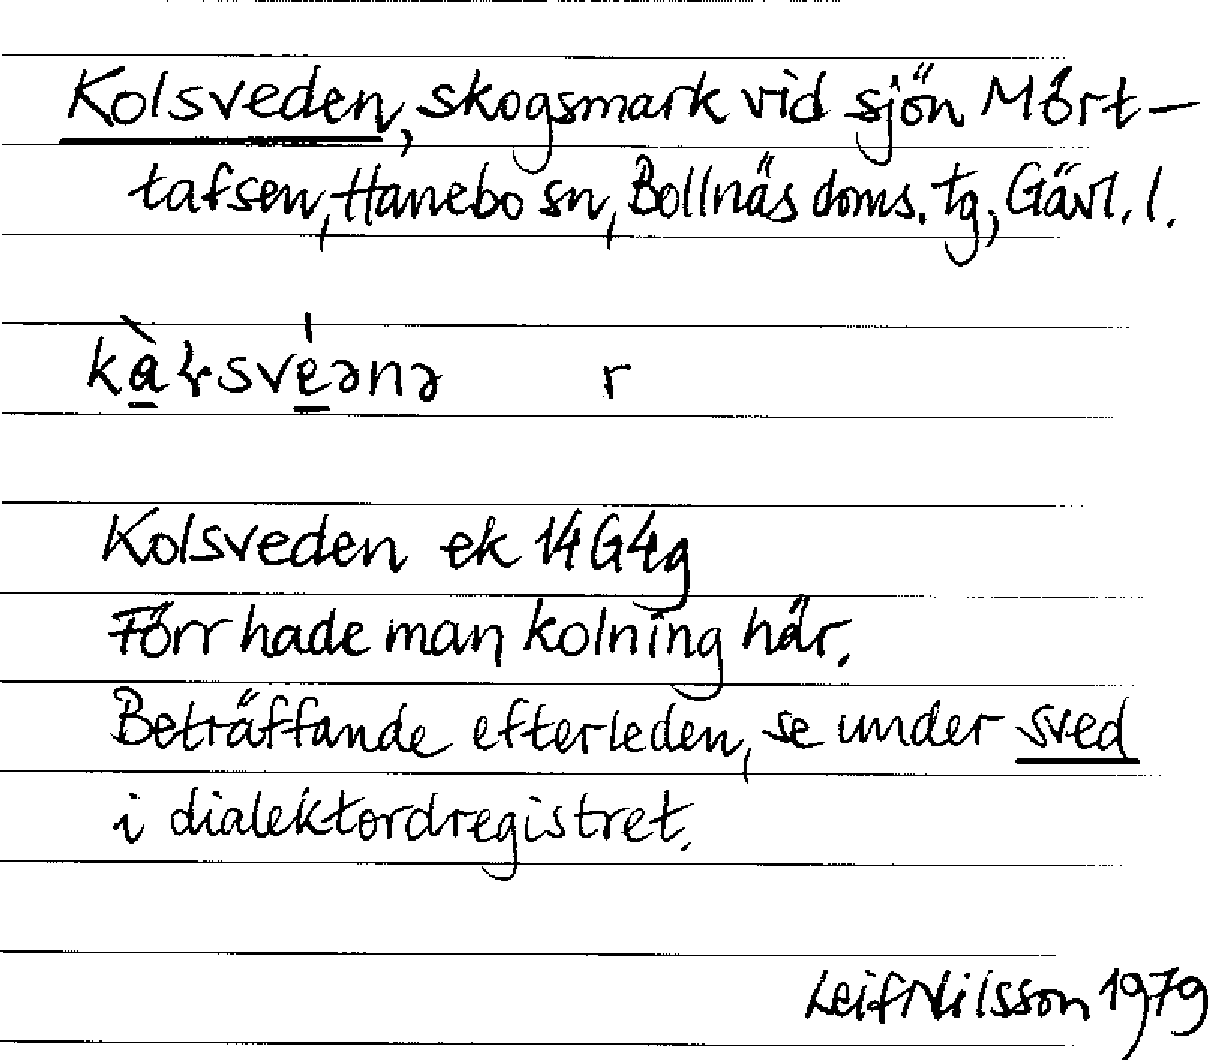 Kolsveden, skogsmark vid sjön Mört-
tafsen, Hanebo sn, Bollnäs doms. tg, Gävl. l.
kàłsvéənə r
Kolsveden ek 14G4g
Förr hade man kolning här.
Beträffande efterleden, se under sved
i dialektordregistret.
Leif Nilsson 1979